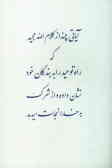 آیاتی چند از کلام الله مجید
که
راه توحید را به بندگان خود
نشان داده و از شرکت
نجات میدهد